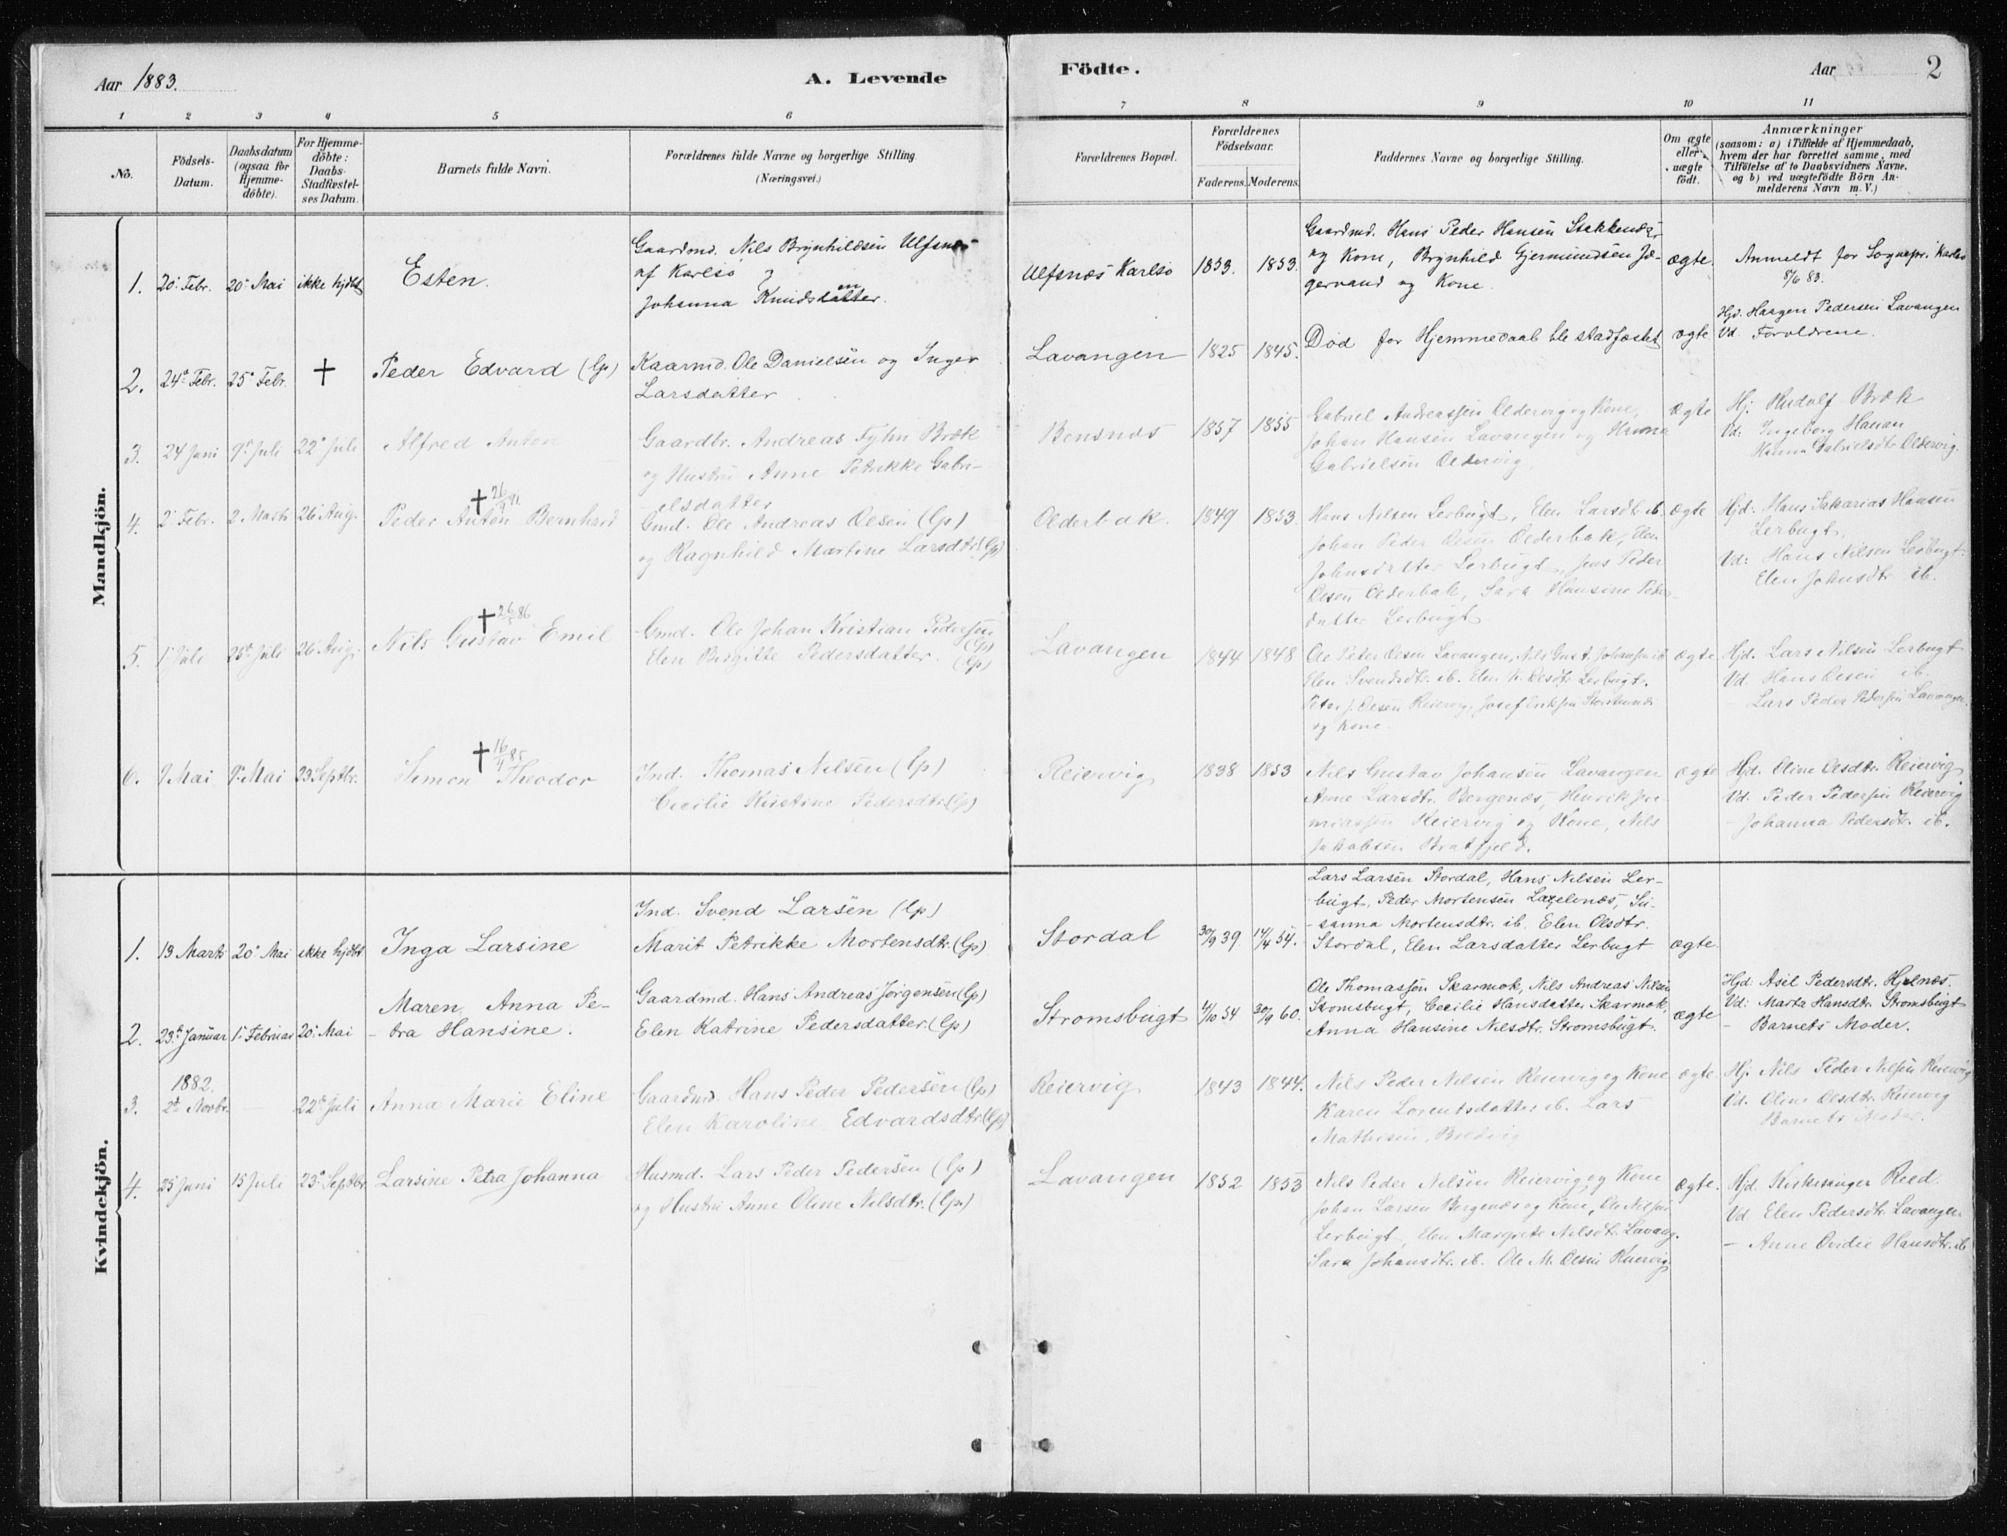 Aar 1883.
A. Levende
Födte.
Aar
2
1 2 3 4 5 6 7 8 9 10 11
No.
Födsels-
Datum.
Daabsdatum
(ogsaa för
Hjemme-
döbte).
For Hjemme-
döbte:
Daabs-
Stadfæstel-
ses Datum.
Barnets fulde Navn.
Forældrenes fulde Navne og borgerlige Stilling.
(Næringsvei.)
Forældrenes Bopæl.
Forældrenes
Födselsaar.
Faderens.
Moderens.
Faddernes Navne og borgerlige Stilling.
Om ægte
eller
uægte
födt.
Anmærkninger
(saasom: a) i Tilfælde af Hjemmedaab,
hvem der har forrettet samme, med
Tilföielse af to Daabsvidners Navne,
og b) ved uægtefödte Börn An-
melderens Navn m. V.)
Mandkjön.
1. 20' Febr. 20' Mai ikke hjdbt Esten.
Gaardmd. Nils Brynhildsen Ulfsnes
af Karlsö
Johanna Knudsdatter.
Ulfsnæs Karlsö 1853. 1853.
Gaardmd. Hans Peder Hansen Stakkenæs
og Kone, Brynhild Gjermundsen Jæ-
gervand og Kone.
ægte.
Anmeldt for Sognepr. i Karlsö
8/6 83.
2. 24' Febr. 25' Febr. † Peder Edvard (Lp)
Kaarmd. Ole Danielsen og Inger
Larsdatter
Lavangen 1825 1845.
Död før Hjemmedaab ble stadfæstet
ægte
Hjd. Haagen Pedersen Lavangen
Vd. Forældrene.
3. 24 Juni 9' Juli 22' Juli Alfred Anton
Gaardbr. Andreas Fyhn Bræk
og Hustru Anne Petrikke Gabri-
elsdatter
Bensnæs 1857 1855
Gabriel Andreassen Oldervig og Kone,
Johan Hansen Lavangen og Hanna
Gabrielsen Oldervig
ægte
Hj: Rudolf Bræk
Vd: Ingeborg Hanan
Hanna Gabrielsdtr Oldervig.
4. 2' Febr. 2 Marts 26' Aug. Peder Anton Bernhard
† 26/9 91
Gmd. Ole Andreas Olsen (Lp)
og Ragnhild Martine Larsdtr. (Lp)
Olderbak. 1849 1853.
Hans Nilsen Lerbugt, Elen Larsdtr ib.
Johan Peder Olsen Olderbak, Elen
Johnsdatter Lerbugt, Jens Peder
Olsen Olderbak, Sara Hansine Peder-
datter Lerbugt
ægte
Hjd: Hans Sakarias Hansen
Lerbugt.
Vd: Hans Nilsen Lerbugt.
Elen Johnsdtr ib.
5. 1' Juli 26' Juli 26' Aug. Nils Gustav Emil
† 26/5 86
Gmd. Ole Johan Kristian Pedersen (Lp)
Elen Birgitte Pedersdatter. (Lp)
Lavangen 1844 1848
Ole Peter Olsen Lavangen, Nils Gust. Johansen ib
Elen Svendsdtr. ib. Elen N. Olsdtr Lerbugt.
Peter J. Olsen Reiervig, Josef Eriksen
og Kone.
ægte
Hjd. Lars Nilsen Lerbugt
Vd. Hans Olsen ib.
– Lars Peder Pedersen Lavangen.
6. 9 Mai 9' Mai 23 Septbr. Simon Theodor
† 16/4 85
Ind. Thomas Nilsen (Lp)
Cecilie Kristine Pedersdtr. (Lp)
Reiervig 1838 1853
Nils Gustav Johansen Lavangen
Anne Larsdtr. Bergenæs, Henrik Jere-
miassen Reiervig og Kone, Nils
Jakobsen Bratfjeld.
ægte
Hjd. Oline Olsdtr. Reiervig
Vd. Peder Pedersen Reiervig
– Johanna Pedersdtr. ib.
Kvindekjön.
1. 13 Marts 20' Mai ikke hjdbt Inga Larsine
Ind. Svend Larsen (Lp)
Marit Petrikke Mortensdtr. (Lp)
Stordal 30/9 39 14/4 54.
Lars Larsen Stordal, Hans Nilsen Ler-
bugt, Peder Mortensen Laxelenæs, Su-
sanna Mortensdtr ib. Elen Olsdtr.
Stordal, Elen Larsdatter Lerbugt
ægte.
2. 23' Januar 1' Februar 20' Mai Maren Anna Pe-
tra Hansine.
Gaardmd. Hans Andreas Jörgensen (Lp)
Elen Katrine Pedersdatter. (Lp)
Stromsbugt 4/10 54 30/9 60.
Ole Thomassen Skarmok, Nils Andreas Nilsen
Stromsbugt, Cecilie Hansdatter Skarmok,
Anna Hansine Nilsdtr. Stromsbugt.
ægte
Hjd: Asil Pedersdtr. Hjelnæs.
Vd: Marta Hansdtr. Stromsbugt
– Barnets Moder.
3. 1882. 2' Novbr. – 22' Juli Anna Marie Eline
Gaardmd. Hans Peder Pedersen (Lp)
Elen Karoline Edvardsdtr. (Lp)
Reiervig 1843 1844.
Nils Peder Nilsen Reiervig og Kone
Karen Lorentsdatter ib. Lars
Mathisen, Bredvig
ægte
Hj. Nils Peder Nilsen Reiervig
Vd. Oline Olsdtr. Reiervig
Barnets Moder.
4. 25' Juni 15' Juli 23' Septbr. Larsine Petra Johanna
Husmd. Lars Peder Pedersen (Lp)
og Hustru Anne Oline Nilsdtr. (Lp)
Lavangen 1852 1853
Nils Peder Nilsen Reiervig og Kone
Johan Larsen Bergenæs og Kone, Ole Nilsen
Lerbugt, Elen Margrete Nilsdtr. Lavang.
Sara Johansdtr. ib. Ole M. Olsen Reiervig
ægte.
Hjd. Kirkesanger Reed.
Vd Elen Pedersdtr. Lavangen
– Anne Ovidie Hansdtr. ib